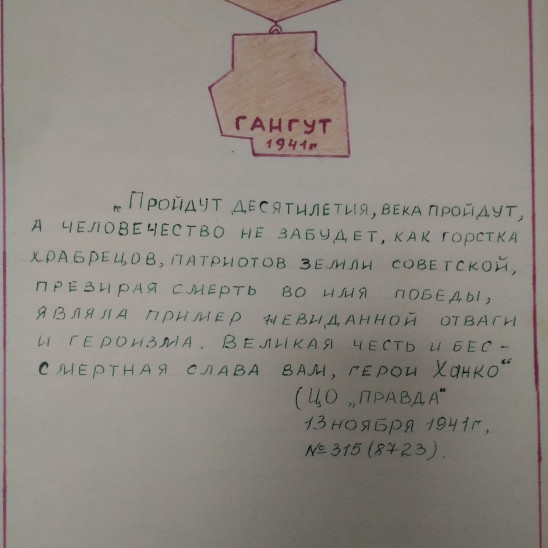 ГАНГУТ
1941г
„Пройдут десятилетия, века пройдут,
а человечество не забудет, как горстка
храбрецов, патриотов земли советской,
презирая смерть во имя победы,
являла пример невиданной отваги
и героизма. Великая честь и бес-
смертная слава вам, герои Ханко"
(ЦО „ПРАВДА"
13 ноября 1941г,
№315(8723).